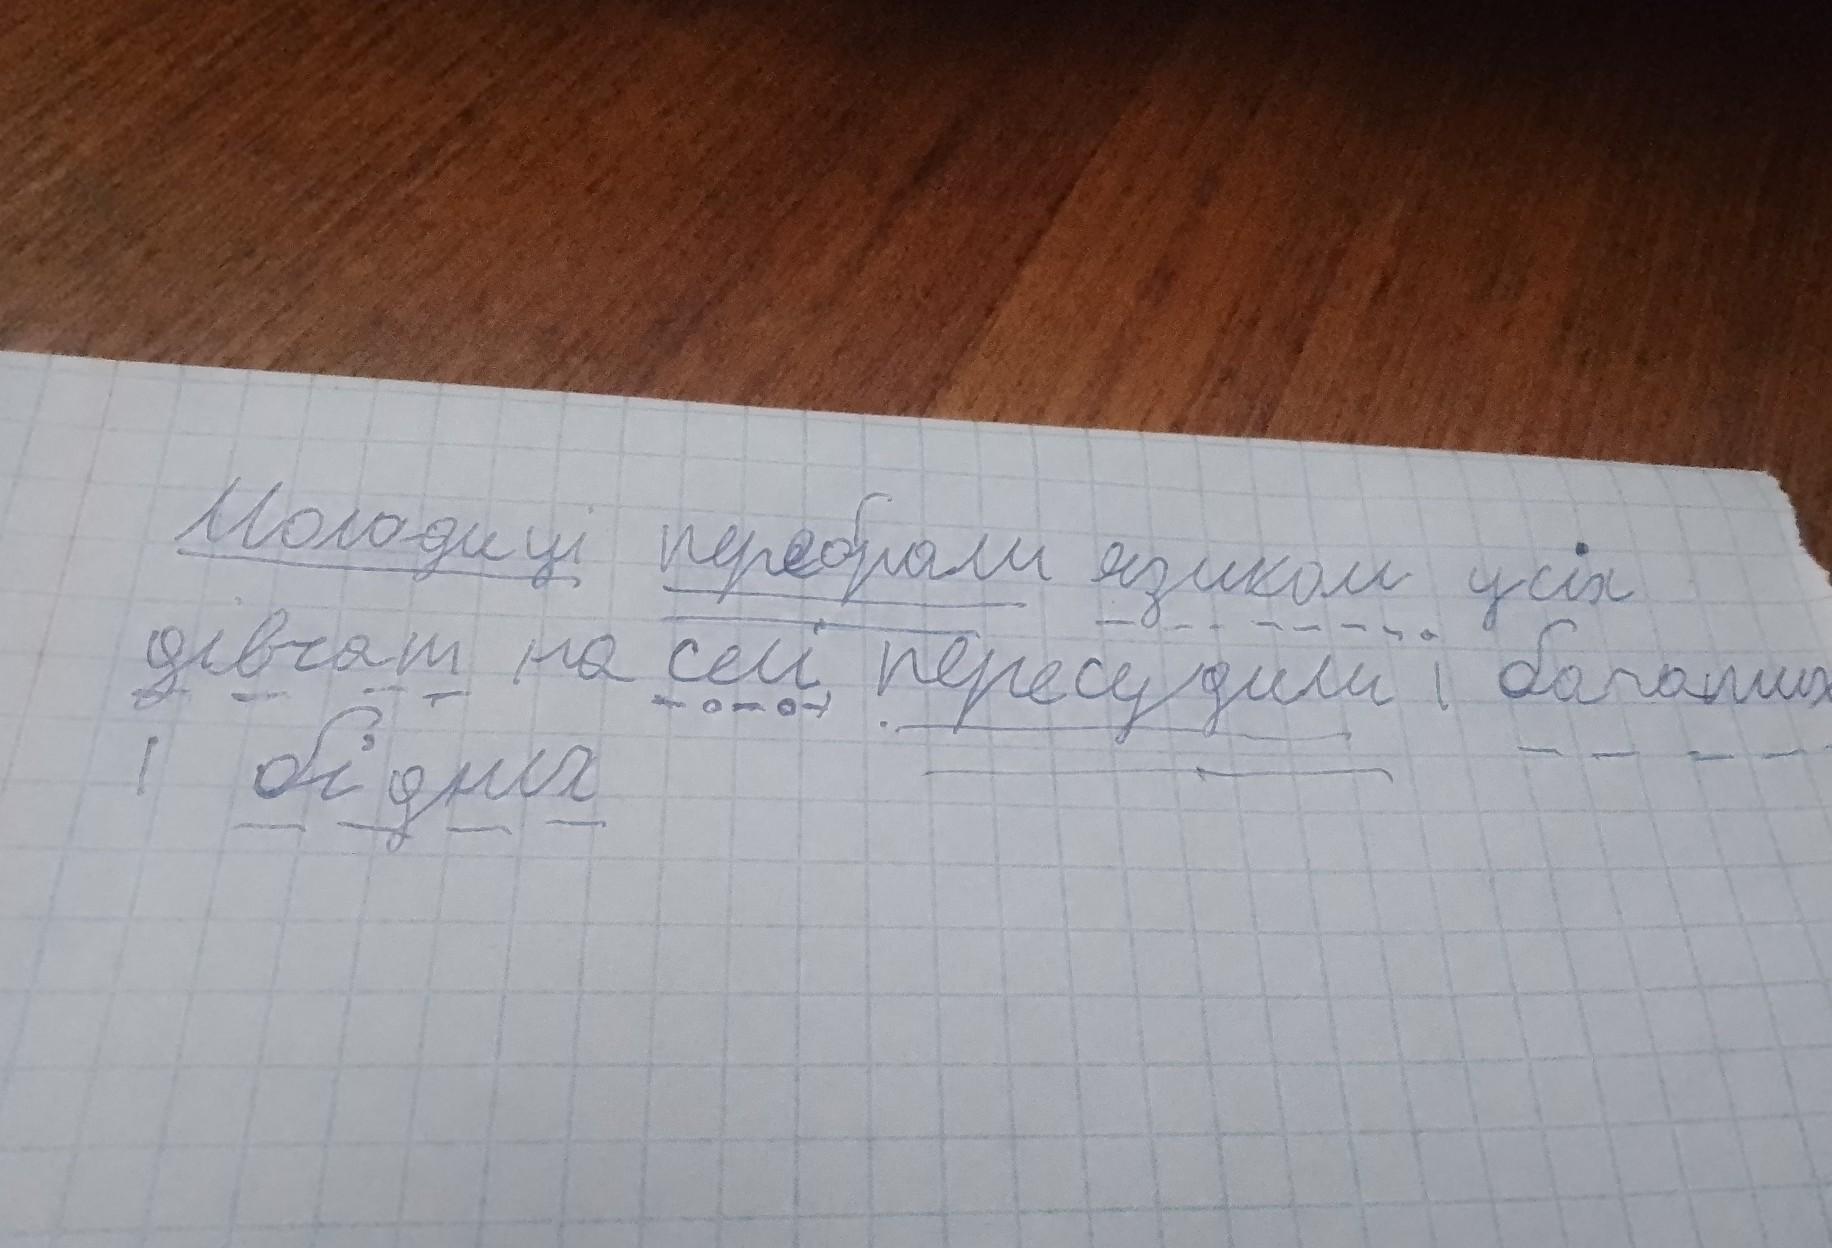 Молодиці перебрали язиком усіх
дівчат на селі, пересудили і багатих
і бідних